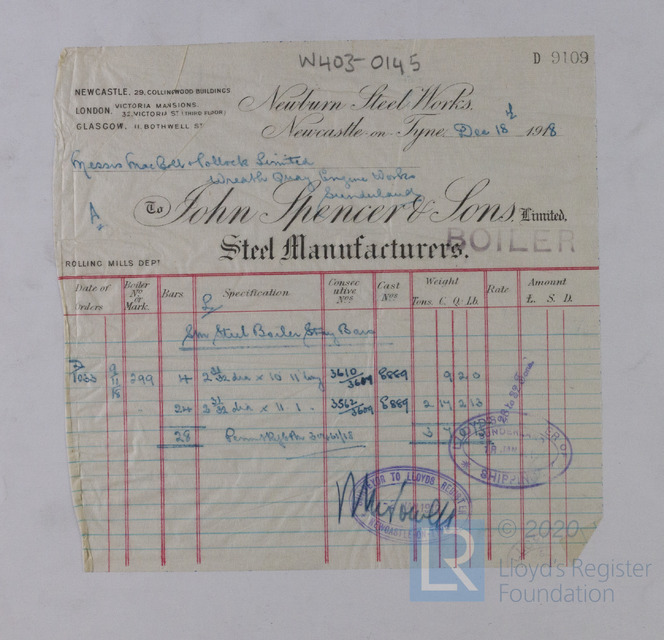 W403-0145
D 9109
NEWCASTLE, 29, COLLINGWOOD BUILDINGS
LONDON, VICTORIA MANSIONS,
32, VICTORIA ST (THIRD FLOOR)
GLASGOW, 11, BOTHWELL ST
Newburn Steel Works,
Newcastle-on-Tyne, Dec 18 1918
Messrs MacColl & Pollock Limited
Wreath Quay Engine Works
Sunderland
To John Spencer & Sons, Limited.
Steel Manufacturers.
BOILER
ROLLING MILLS DEPT
Date of Orders Boiler No. or Mark. Bars Specification Consecutive Nos Cast Nos Weight Tons. C. Q. Lb. Rate Amount £. S. D.
Sm Steel Boiler Stay Bars
299 4 2 31/32 dia x 10 11 3610/3609 8889 9 2 0
24 3 31/32 dia x 11 1 3562/3609 8889 2 17 2 13
28 30/11/18
SURVEYOR TO LLOYDS REGISTER
NEWCASTLE-ON-TYNE
LLOYD'S
SHIPPING
LR
© 2020
Lloyd's Register
Foundation